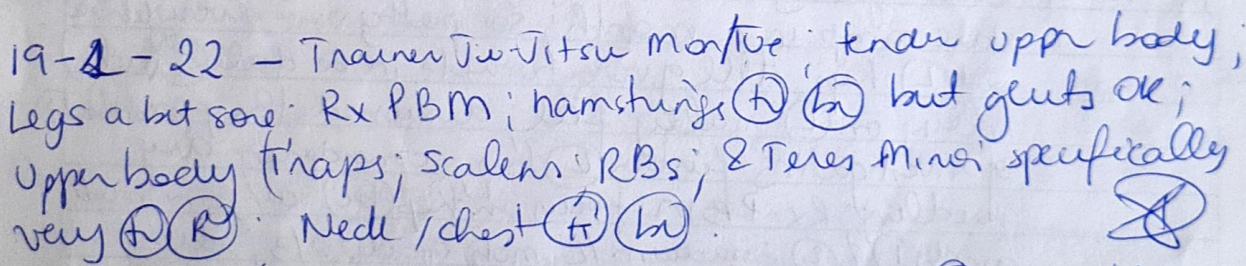 19-1-22 – Trainer Ju-Jitsu Mon/Tue; tender uppr body;
Legs a bit sore; Rx PBM; hamstrings but gluts OK;
Upper body Traps; Scalens; RBs; & Teres Minor specifically
very R. Neck / chest